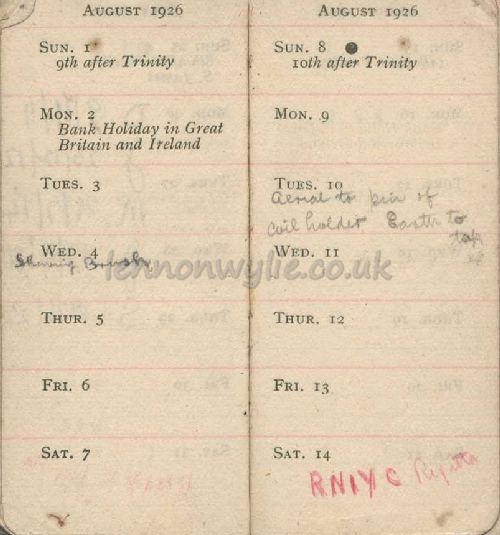 AUGUST 1926
SUN. 1
9th after Trinity
MON. 2
Bank Holiday in Great
Britain and Ireland
TUES. 3
WED. 4
Shaving Brush
THUR. 5
FRI. 6
SAT. 7
AUGUST 1926
SUN. 8
10th after Trinity
MON. 9
TUES. 10
Aerial to pin of
coil holder Earth to
WED. 11
THUR. 12
FRI. 13
SAT. 14
RNIYC Regatta
lennonwylie.co.uk